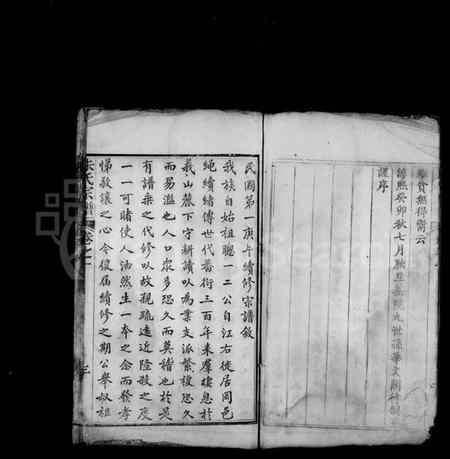 尊貴無得齋云
康熙癸卯秋七月
九世孫華文閣待制
謹序
民國第一庚午續修宗譜敘
我族自始祖聰一二公自江右徙居岡邑
純續緒傳世代蕃衍三百年來羣棲息於
義山麓下守耕讀以為業支派繁複恐久
而易濫也人口眾多恐久而莫稽也於是
有譜乘之代修以故親疏遠近隆殺之度
一一可睹使人油然生一本之念而發孝
悌敬讓之心今復屆續修之期公舉叔祖
朱氏宗譜
卷之一
三